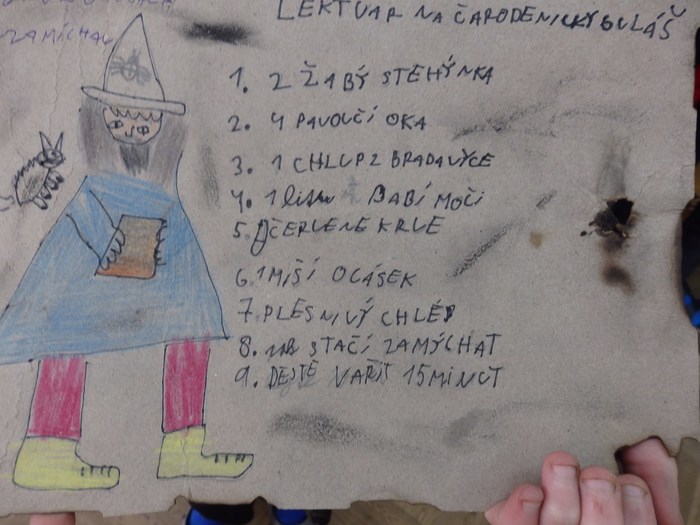 ZAMÍCHAT
LEKTVAR NA ČARODENICKÝ GULÁŠ
1. 2 ŽABÝ STEHÝNKA
2. 4 PAVOUČÍ OKA
3. 1 CHLUP Z BRADAVÝCE
4. 1 BABÍ MOČI
5. ČERLENE KRLE
6. 1 MIŠÍ OCÁSEK
7. PLESNIVÝ CHLÉB
8. STAČÍ ZAMÝCHAT
9. DEŠTĚ VAŘIT 15 MINUT